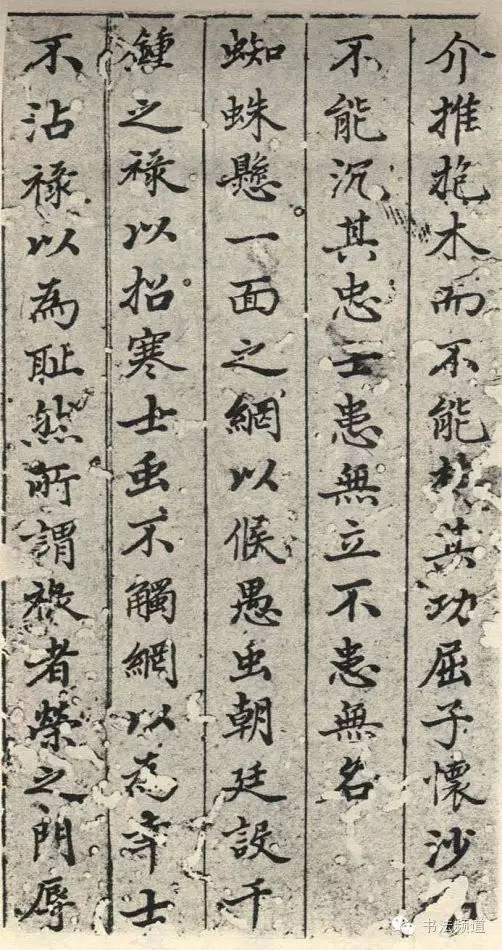 介推抱木而不能其功屈子懷沙
不能沉其忠士患無立不患無名
蜘蛛懸一面之網以候愚虫朝廷設千
鍾之祿以招寒士虫不觸網以為奇士
不沾祿以為耻然所謂祿者榮之門辱
书法频道